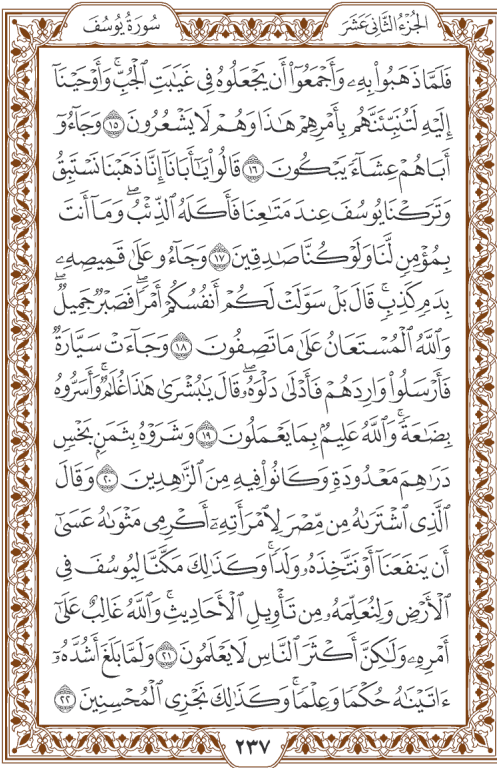 الجزء الثاني عشر
سورة يوسف
فَلَمَّا ذَهَبُوا۟ بِهِۦ وَأَجْمَعُوٓا۟ أَن يَجْعَلُوهُ فِى غَيَٰبَتِ ٱلْجُبِّ ۚ وَأَوْحَيْنَآ
إِلَيْهِ لَتُنَبِّئَنَّهُم بِأَمْرِهِمْ هَٰذَا وَهُمْ لَا يَشْعُرُونَ ١٥ وَجَآءُوٓ
أَبَاهُمْ عِشَآءً يَبْكُونَ ١٦ قَالُوا۟ يَٰٓأَبَانَآ إِنَّا ذَهَبْنَا نَسْتَبِقُ
وَتَرَكْنَا يُوسُفَ عِندَ مَتَٰعِنَا فَأَكَلَهُ ٱلذِّئْبُ ۖ وَمَآ أَنتَ
بِمُؤْمِنٍ لَّنَا وَلَوْ كُنَّا صَٰدِقِينَ ١٧ وَجَآءُو عَلَىٰ قَمِيصِهِۦ
بِدَمٍ كَذِبٍ ۚ قَالَ بَلْ سَوَّلَتْ لَكُمْ أَنفُسُكُمْ أَمْرًا ۖ فَصَبْرٌ جَمِيلٌ ۖ
وَٱللَّهُ ٱلْمُسْتَعَانُ عَلَىٰ مَا تَصِفُونَ ١٨ وَجَآءَتْ سَيَّارَةٌ
فَأَرْسَلُوا۟ وَارِدَهُمْ فَأَدْلَىٰ دَلْوَهُۥ ۖ قَالَ يَٰبُشْرَىٰ هَٰذَا غُلَٰمٌ ۚ وَأَسَرُّوهُ
بِضَٰعَةً ۚ وَٱللَّهُ عَلِيمٌۢ بِمَا يَعْمَلُونَ ١٩ وَشَرَوْهُ بِثَمَنٍۭ بَخْسٍ
دَرَٰهِمَ مَعْدُودَةٍ وَكَانُوا۟ فِيهِ مِنَ ٱلزَّٰهِدِينَ ٢٠ وَقَالَ
ٱلَّذِى ٱشْتَرَىٰهُ مِن مِّصْرَ لِٱمْرَأَتِهِۦٓ أَكْرِمِى مَثْوَىٰهُ عَسَىٰٓ
أَن يَنفَعَنَآ أَوْ نَتَّخِذَهُۥ وَلَدًا ۚ وَكَذَٰلِكَ مَكَّنَّا لِيُوسُفَ فِى
ٱلْأَرْضِ وَلِنُعَلِّمَهُۥ مِن تَأْوِيلِ ٱلْأَحَادِيثِ ۚ وَٱللَّهُ غَالِبٌ عَلَىٰٓ
أَمْرِهِۦ وَلَٰكِنَّ أَكْثَرَ ٱلنَّاسِ لَا يَعْلَمُونَ ٢١ وَلَمَّا بَلَغَ أَشُدَّهُۥٓ
ءَاتَيْنَٰهُ حُكْمًا وَعِلْمًا ۚ وَكَذَٰلِكَ نَجْزِى ٱلْمُحْسِنِينَ ٢٢
٢٣٧